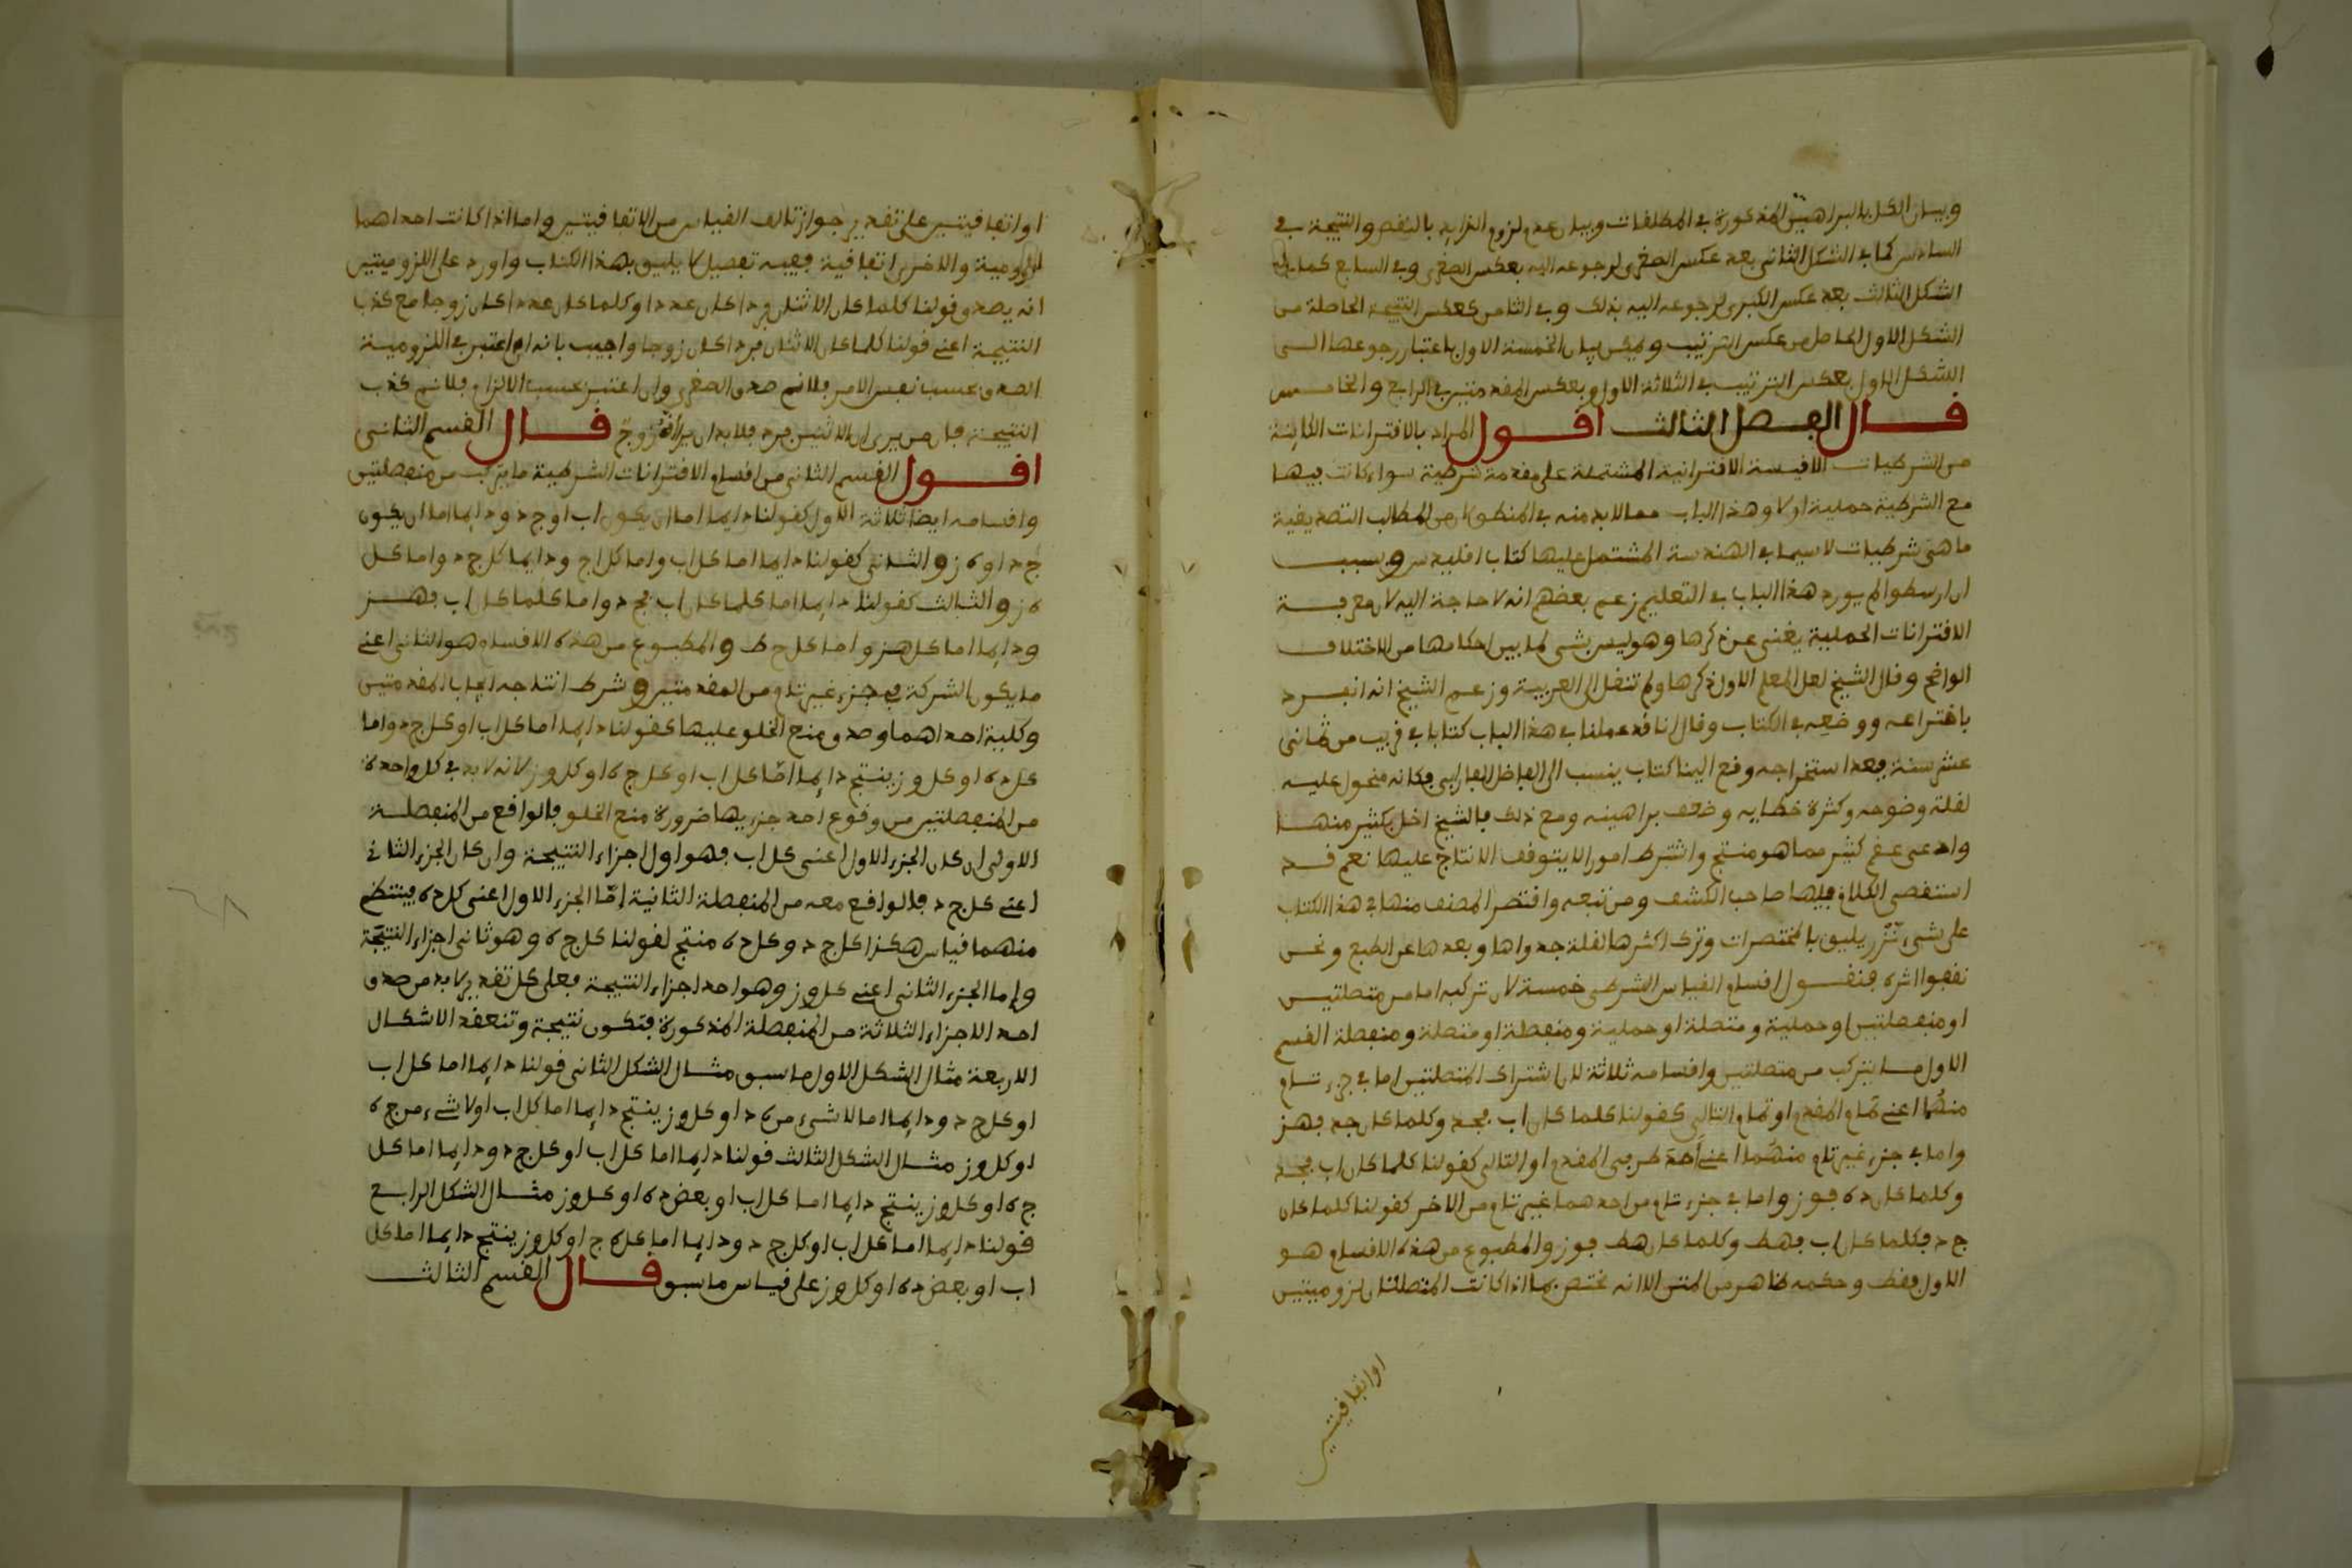 وبيان الكل بالبراهين المذكورة في المطلقات وبيان عدم لزوم الزايد بالنقض والنتيجة في
السادس كما في الشكل الثاني بعد عكس الصغرى لرجوعه اليه بعكس الصغرى وفي السابع كما في
الشكل الثالث بعد عكس الكبرى لرجوعه اليه بذلك وفي الثامن كعكس النتيجة الحاصلة من
الشكل الاول الحاصل من عكس الترتيب ويمكن بيان الخمسة الاول باعتبار رجوعها الى
الشكل الاول بعكس الترتيب في الثلاثة الاول وبعكس المقدمتين في الرابع والخامس
قال الفصل الثالث اقول المراد بالاقترانات الكاينة
من الشرطيات الاقيسة الاقترانية المشتملة على مقدمة شرطية سواء كانت فيها
مع الشرطية حملية او لا وهذا الباب مما لا بد منه في المنطق لان من المطالب التصديقية
ما هي شرطيات لا سيما في الهندسة المشتمل عليها كتاب اقليدس وبسبب
ان ارسطو لم يورد هذا الباب في التعليم زعم بعضهم انه لا حاجة اليه لان معرفة
الاقترانات الحملية يغني عن ذكرها وهو ليس بشي لما بين احكامها من الاختلاف
الواضح وقال الشيخ لعل المعلم الاول ذكرها ولم تنقل الى العربية وزعم الشيخ انه انفرد
باختراعه ووضعه في الكتاب وقال انا قد عملنا في هذا الباب كتابا في قريب من ثماني
عشر سنة فبعد استخراجه وقع الينا كتاب ينسب الى الفاضل الفارابي فكانه منحول عليه
لقلة وضوحه وكثرة خطايه وضعف براهينه ومع ذلك فالشيخ اخل بكثير منها
وادعى عقم كثير مما هو منتج واشترط امورا لا يتوقف الانتاج عليها نعم قد
استقصى الكلام فيها صاحب الكشف ومن تبعه واقتصر المصنف منها في هذا الكتاب
على شيء نزر يليق بالمختصرات وترك اكثرها لقلة جدواها وبعدها عن الطبع ونحن
نقفوا اثره فنقول اقسام القياس الشرطي خمسة لان تركبه اما من متصلتين
او منفصلتين او حملية ومتصلة او حملية ومنفصلة او متصلة ومنفصلة القسم
الاول ما يتركب من متصلتين واقسامه ثلاثة لان اشتراك المتصلتين اما في جزء تام
منهما اعني تمام المقدم او تمام التالي كقولنا كلما كان اب فجد وكلما كان جد فهز
واما في جزء غير تام منهما اعني احد طرفي المقدم او التالي كقولنا كلما كان اب فجد
وكلما كان ده فوز واما في جزء تام من احدهما غير تام من الاخر كقولنا كلما كان
ج د فكلما كان اب فهط وكلما كان هط فوز والمطبوع من هذه الاقسام هو
الاول فقط وحكمه ظاهر من المتن الا انه مختص بما اذا كانت المتصلتان لزوميتين
اواتفاقيتين
او اتفاقيتين على تقدير جواز تالف القياس من الاتفاقيتين واما اذا كانت احداهما
لزومية والاخرى اتفاقية ففيه تفصيل لا يليق بهذا الكتاب واورد على اللزوميتين
انه يصدق قولنا كلما كان الاثنان فردا كان عددا وكلما كان عددا كان زوجا مع كذب
النتيجة اعني قولنا كلما كان الاثنان فردا كان زوجا واجيب بانه ان اعتبر في اللزومية
الصدق بحسب نفس الامر فلا نسلم صدق الصغرى وان اعتبر بحسب الالزام فلا نسلم كذب
النتيجة فان من يرى ان الاثنين فرد فلا بد ان يرى انه زوج قال القسم الثاني
اقول القسم الثاني من اقسام الاقترانات الشرطية ما يتركب من منفصلتين
واقسامه ايضا ثلاثة الاول كقولنا دايما اما ان يكون اب او جد ودايما اما ان يكون
ج د او ه ز والثاني كقولنا دايما اما كل اب واما كل اج ودايما كل ج د واما كل
ه ز والثالث كقولنا دايما اما كلما كان اب فج د واما كلما كان اب فهز
ودايما اما كل هز واما كل ح ط والمطبوع من هذه الاقسام هو الثاني اعني
ما يكون الشركة في جزء غير تام من المقدمتين وشرط انتاجه ايجاب المقدمتين
وكلية احداهما وصدق منع الخلو عليها كقولنا دايما اما كل اب او كل ج د واما
كل ده او كل وز ينتج دايما اما كل اب او كل ج ه او كل وز لانه لا بد في كل واحدة
من المنفصلتين من وقوع احد جزءيها ضرورة منع الخلو فالواقع من المنفصلة
الاولى ان كان الجزء الاول اعني كل اب فهو اول اجزاء النتيجة وان كان الجزء الثاني
اعني كل ج د فالواقع معه من المنفصلة الثانية اما الجزء الاول اعني كل ده فينتظم
منهما قياس هكذا كل ج د وكل ده منتج لقولنا كل ج ه وهو ثاني اجزاء النتيجة
واما الجزء الثاني اعني كل وز وهو احد اجزاء النتيجة فعلى كل تقدير لا بد من صدق
احد الاجزاء الثلاثة من المنفصلة المذكورة فتكون نتيجة وتنعقد الاشكال
الاربعة مثال الشكل الاول ما سبق مثال الشكل الثاني قولنا دايما اما كل اب
او كل ج د ودايما اما لا شيء من ه د او كل وز ينتج دايما اما كل اب او لا شيء من ج ه
او كل وز مثال الشكل الثالث قولنا دايما اما كل اب او كل ج د ودايما اما كل
ج ه او كل وز ينتج دايما اما كل اب او بعض ده او كل وز مثال الشكل الرابع
قولنا دايما اما كل اب او كل ج د ودايما اما كل ه ج او كل وز ينتج دايما اما كل
اب او بعض ده او كل وز على قياس ما سبق قال القسم الثالث